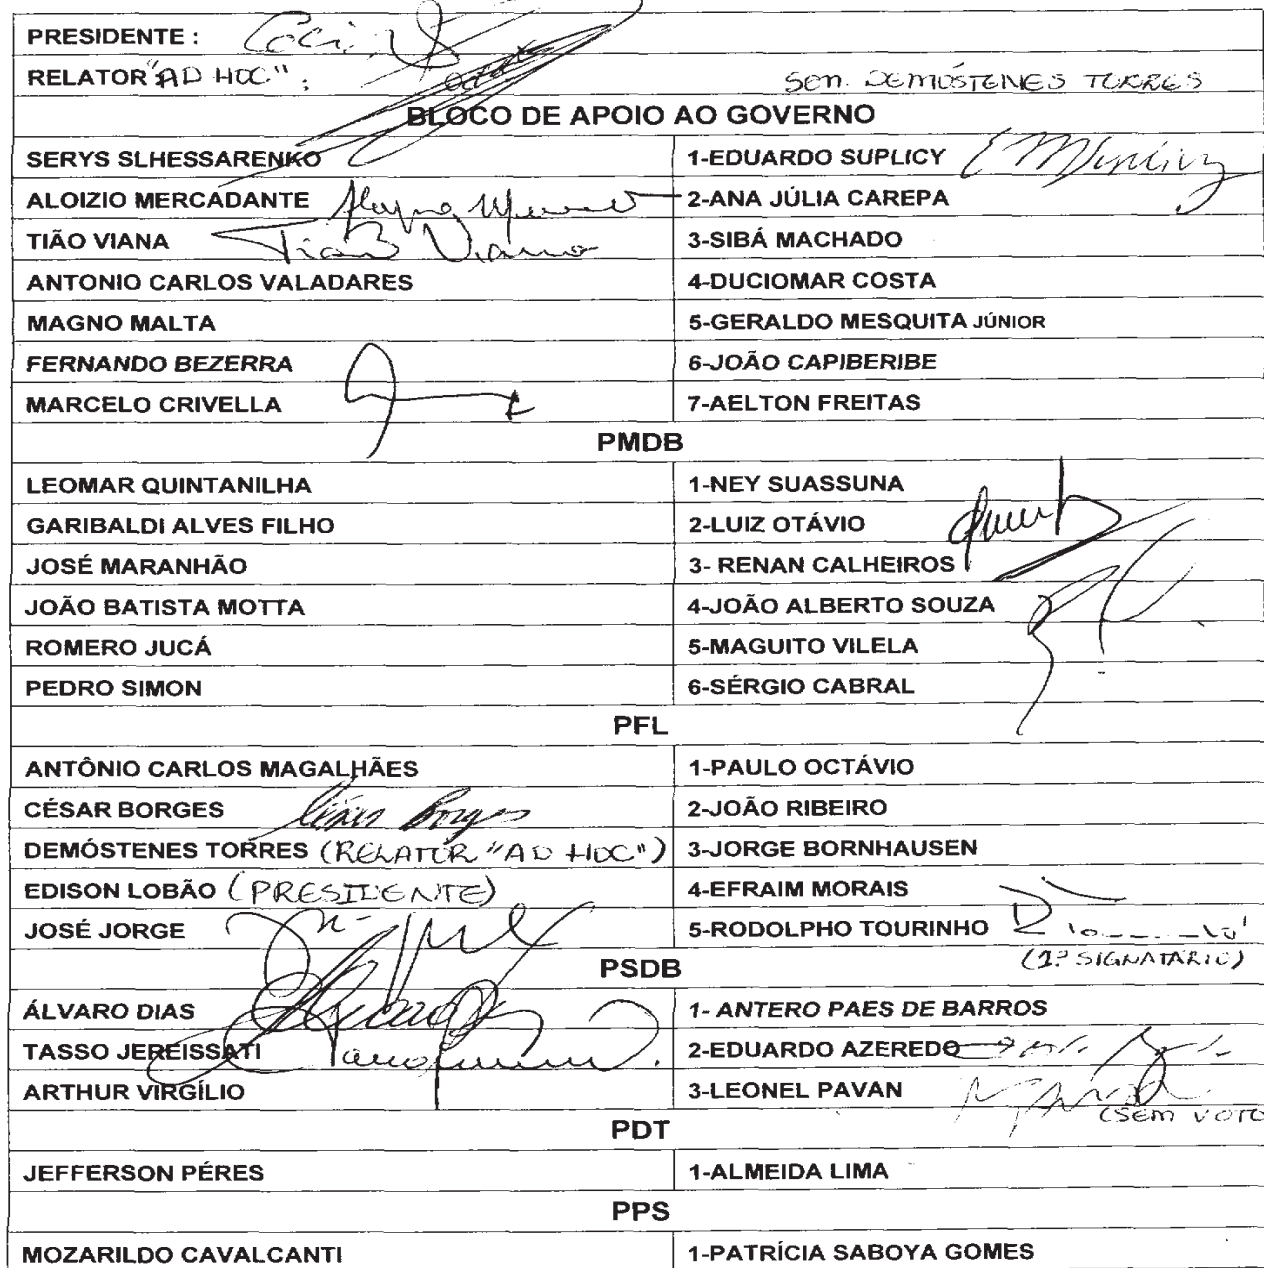 PRESIDENTE :
RELATOR "AD HOC" : SEN. DEMÓSTENES TORRES
BLOCO DE APOIO AO GOVERNO
SERYS SLHESSARENKO 1-EDUARDO SUPLICY
ALOIZIO MERCADANTE 2-ANA JÚLIA CAREPA
TIÃO VIANA Tião Viana 3-SIBÁ MACHADO
ANTONIO CARLOS VALADARES 4-DUCIOMAR COSTA
MAGNO MALTA 5-GERALDO MESQUITA JÚNIOR
FERNANDO BEZERRA 6-JOÃO CAPIBERIBE
MARCELO CRIVELLA 7-AELTON FREITAS
PMDB
LEOMAR QUINTANILHA 1-NEY SUASSUNA
GARIBALDI ALVES FILHO 2-LUIZ OTÁVIO
JOSÉ MARANHÃO 3- RENAN CALHEIROS
JOÃO BATISTA MOTTA 4-JOÃO ALBERTO SOUZA
ROMERO JUCÁ 5-MAGUITO VILELA
PEDRO SIMON 6-SÉRGIO CABRAL
PFL
ANTÔNIO CARLOS MAGALHÃES 1-PAULO OCTÁVIO
CÉSAR BORGES César Borges 2-JOÃO RIBEIRO
DEMÓSTENES TORRES (RELATOR "AD HOC") 3-JORGE BORNHAUSEN
EDISON LOBÃO (PRESIDENTE) 4-EFRAIM MORAIS
JOSÉ JORGE 5-RODOLPHO TOURINHO
(1º SIGNATÁRIO)
PSDB
ÁLVARO DIAS 1- ANTERO PAES DE BARROS
TASSO JEREISSATI 2-EDUARDO AZEREDO
ARTHUR VIRGÍLIO 3-LEONEL PAVAN
(SEM VOTO
PDT
JEFFERSON PÉRES 1-ALMEIDA LIMA
PPS
MOZARILDO CAVALCANTI 1-PATRÍCIA SABOYA GOMES